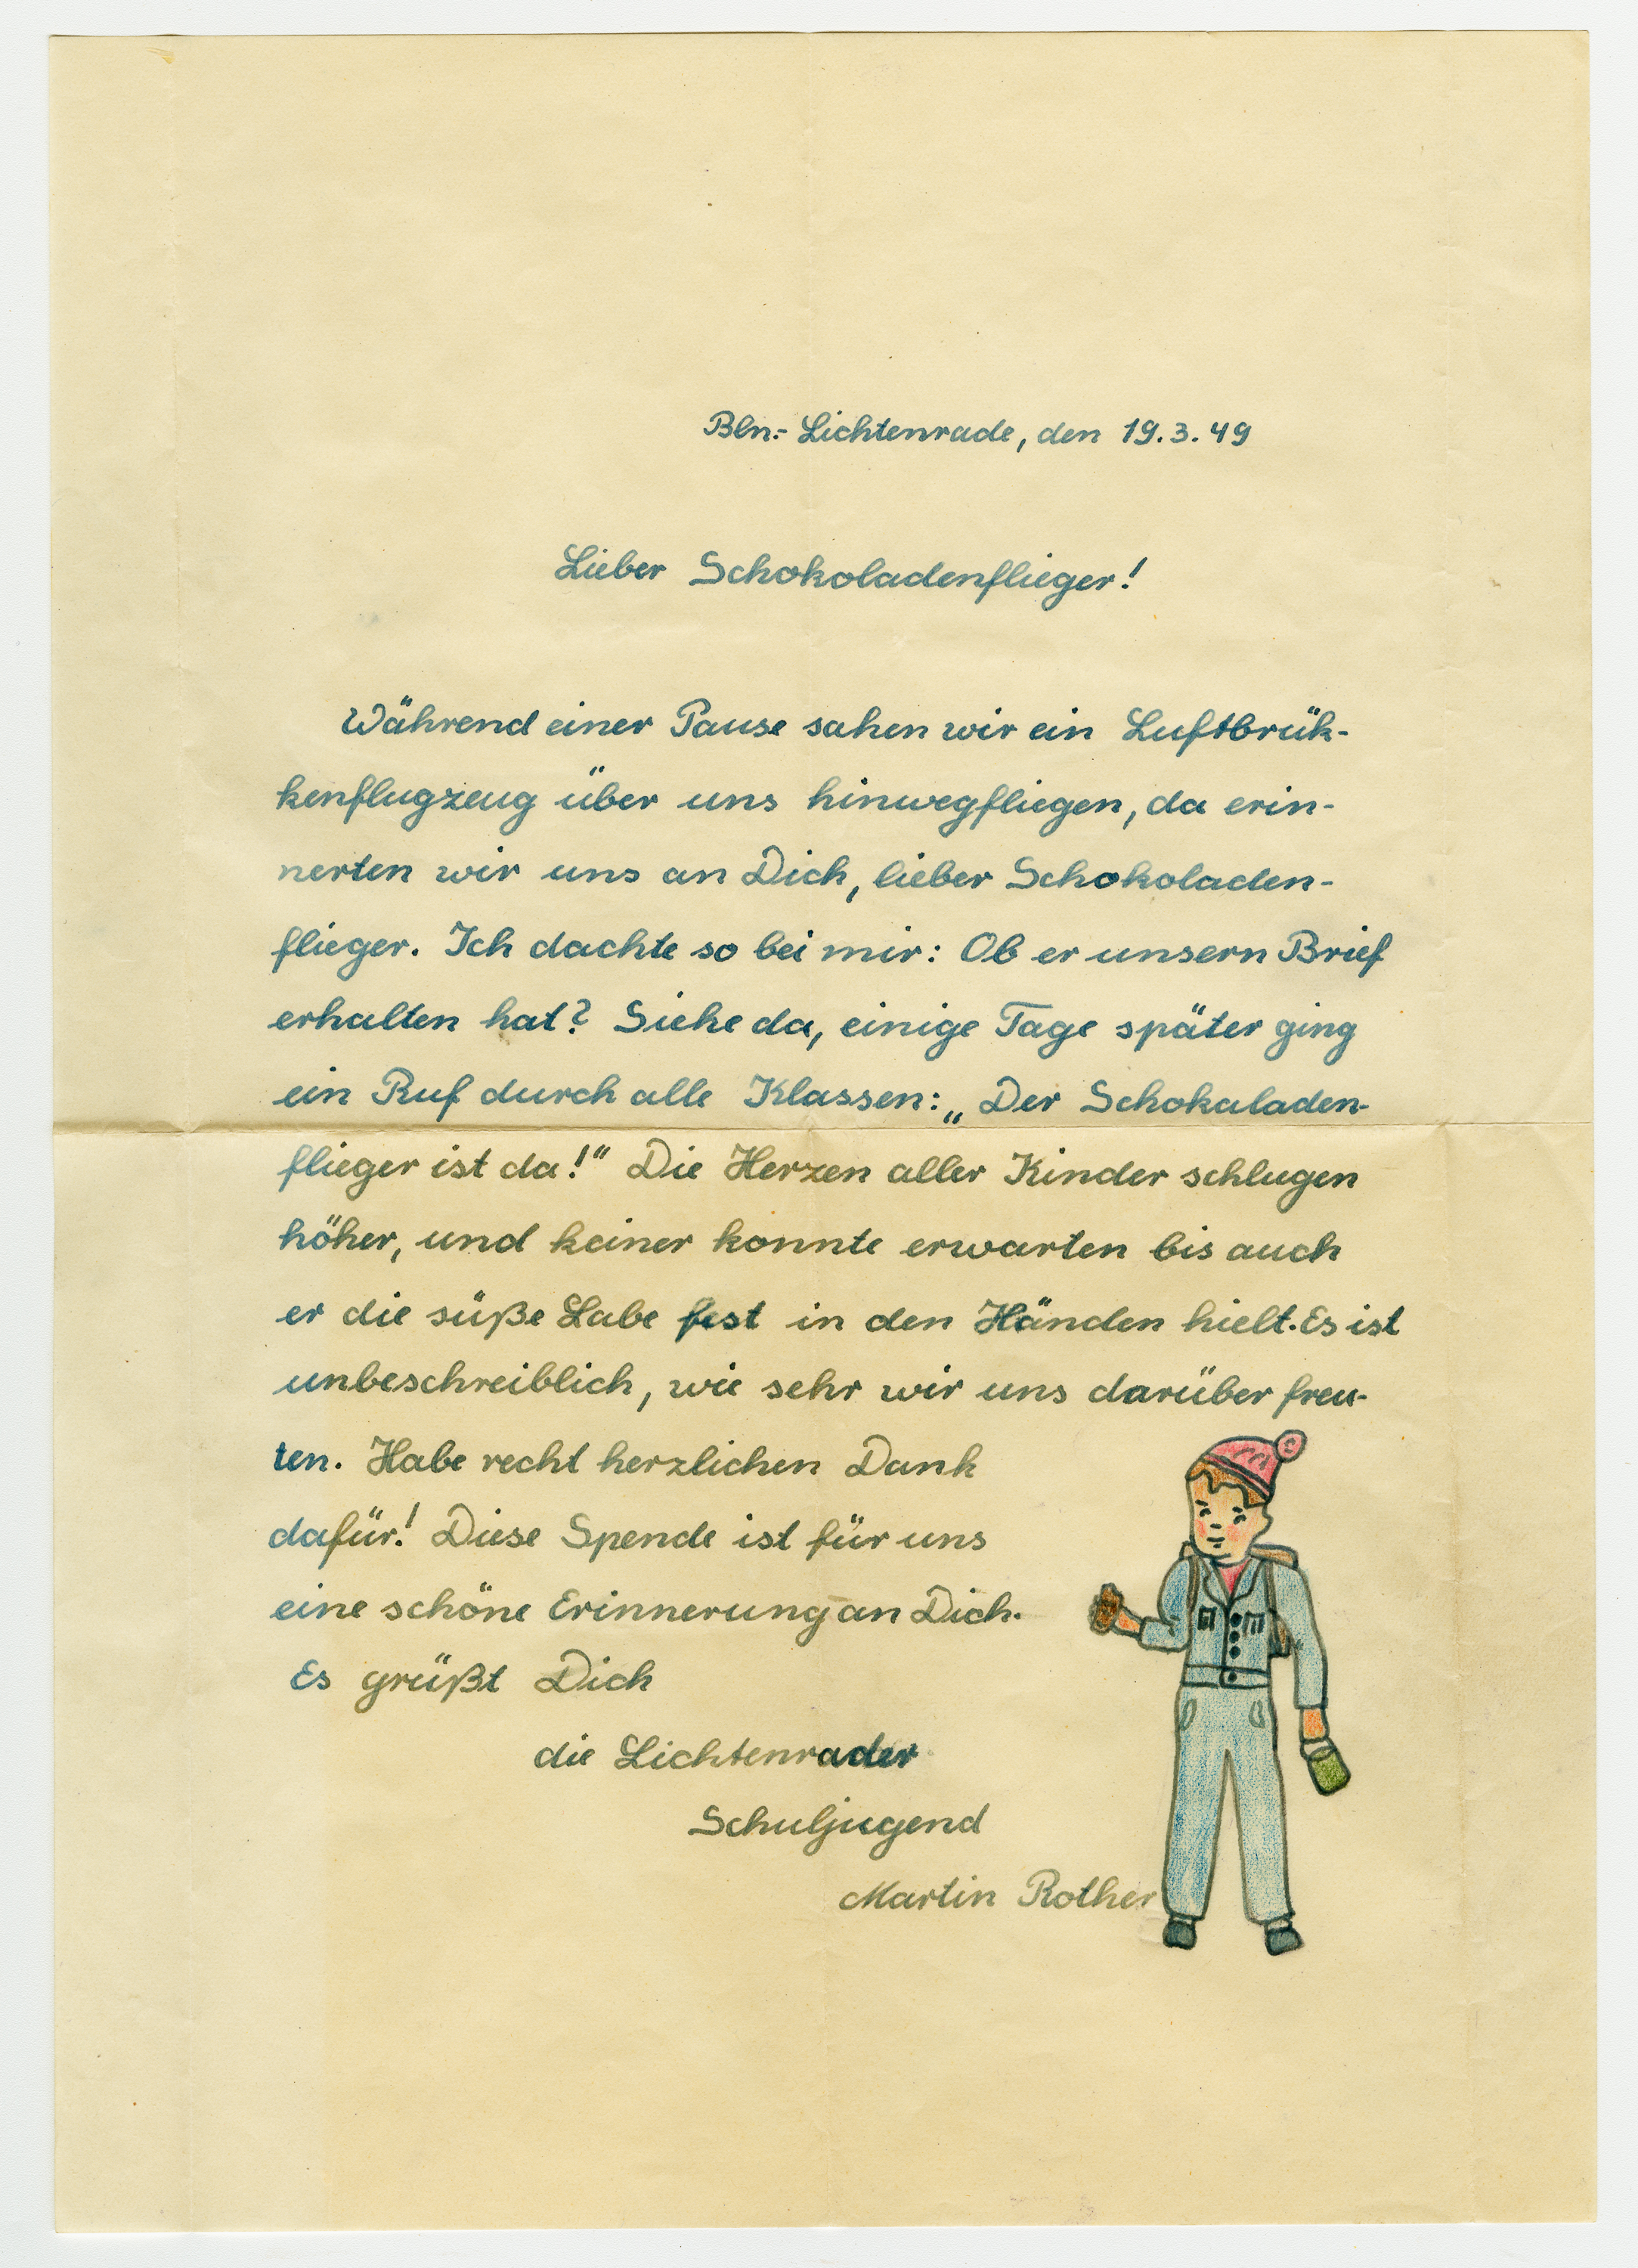 Bln.- Lichtenrade, den 19.3.49
Lieber Schokoladenflieger!
Während einer Pause sahen wir ein Luftbrük-
kenflugzeug über uns hinwegfliegen, da erin-
nerten wir uns an Dich, lieber Schokoladen-
flieger. Ich dachte so bei mir: Ob er unsern Brief
erhalten hat? Siehe da, einige Tage später ging
ein Ruf durch alle Klassen: „Der Schokaladen-
flieger ist da!" Die Herzen aller Kinder schlugen
höher, und keiner konnte erwarten bis auch
er die süße Labe fest in den Händen hielt. Es ist
unbeschreiblich, wie sehr wir uns darüber freu-
ten. Habe recht herzlichen Dank
dafür! Diese Spende ist für uns
eine schöne Erinnerung an Dich.
Es grüßt Dich
die Lichtenrader
Schuljugend
Martin Rother